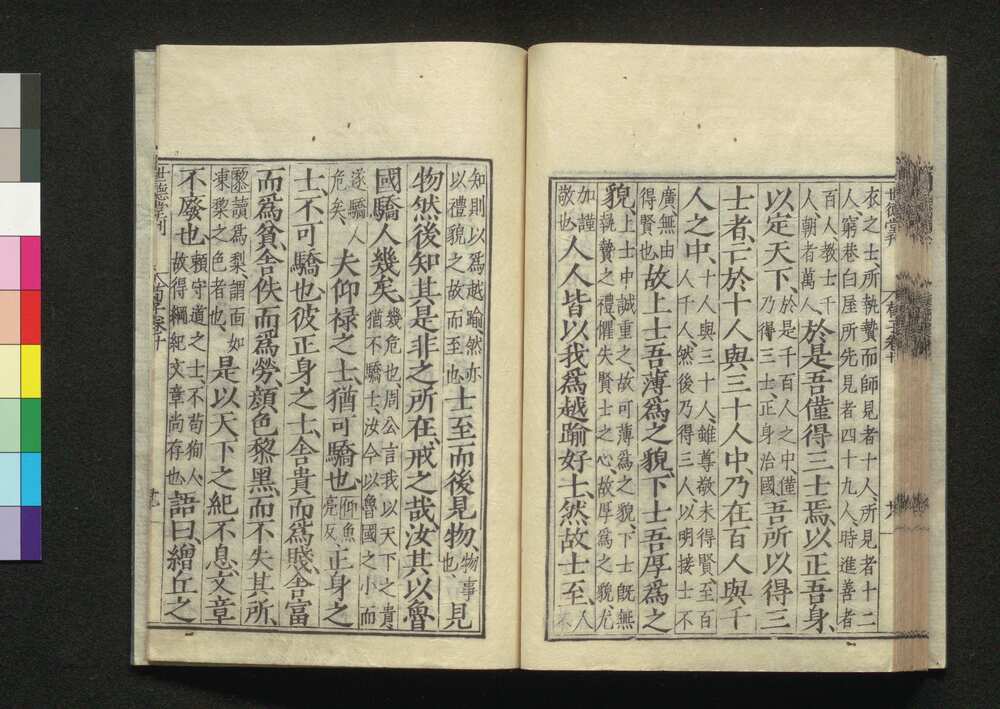 世德堂刊
衣之士所執贄而師見者十人、所見者十二
人、窮巷白屋所先見者四十九人、時進善者
百人、教士千
人、朝者萬人、
於是吾僅得三士焉、以正吾身、
以定天下、
於是千百人之中、僅
乃得三士、正身治國、
吾所以得三
士者、亡於十人與三十人中、乃在百人與千
人之中、
十人與三十人、雖尊敬未得賢、至百
人千人、然後乃得三人、以明接士不
廣、無由
得賢也、
故上士吾薄爲之貌、下士吾厚爲之
貌、
上士中誠重之、故可薄爲之貌、下士旣無
執贄之禮、懼失賢士之心、故厚爲之貌、尤
加謹
敬也、
人人皆以我爲越踰好士、然故士至、
人
不
知則以爲越踰、然亦
以禮貌之故而至也、
士至而後見物、
物事
也、
見
物然後知其是非之所在、戒之哉、汝其以魯
國驕人幾矣、
幾危也、周公言我以天下之貴、
猶不驕士、汝今以魯國之小而
遂驕人
危矣、
夫仰禄之士、猶可驕也、
仰魚
亮反、
正身之
士、不可驕也、彼正身之士、舍貴而爲賤、舍富
而爲貧、舍佚而爲勞、顔色黎黑、而不失其所、
黎讀爲梨、謂面如
凍棃之色者也、
是以天下之紀不息、文章
不廢也、
賴守道之士、不苟徇人、
故得綱紀文章尚存也、
語曰、繒丘之
世德堂刊